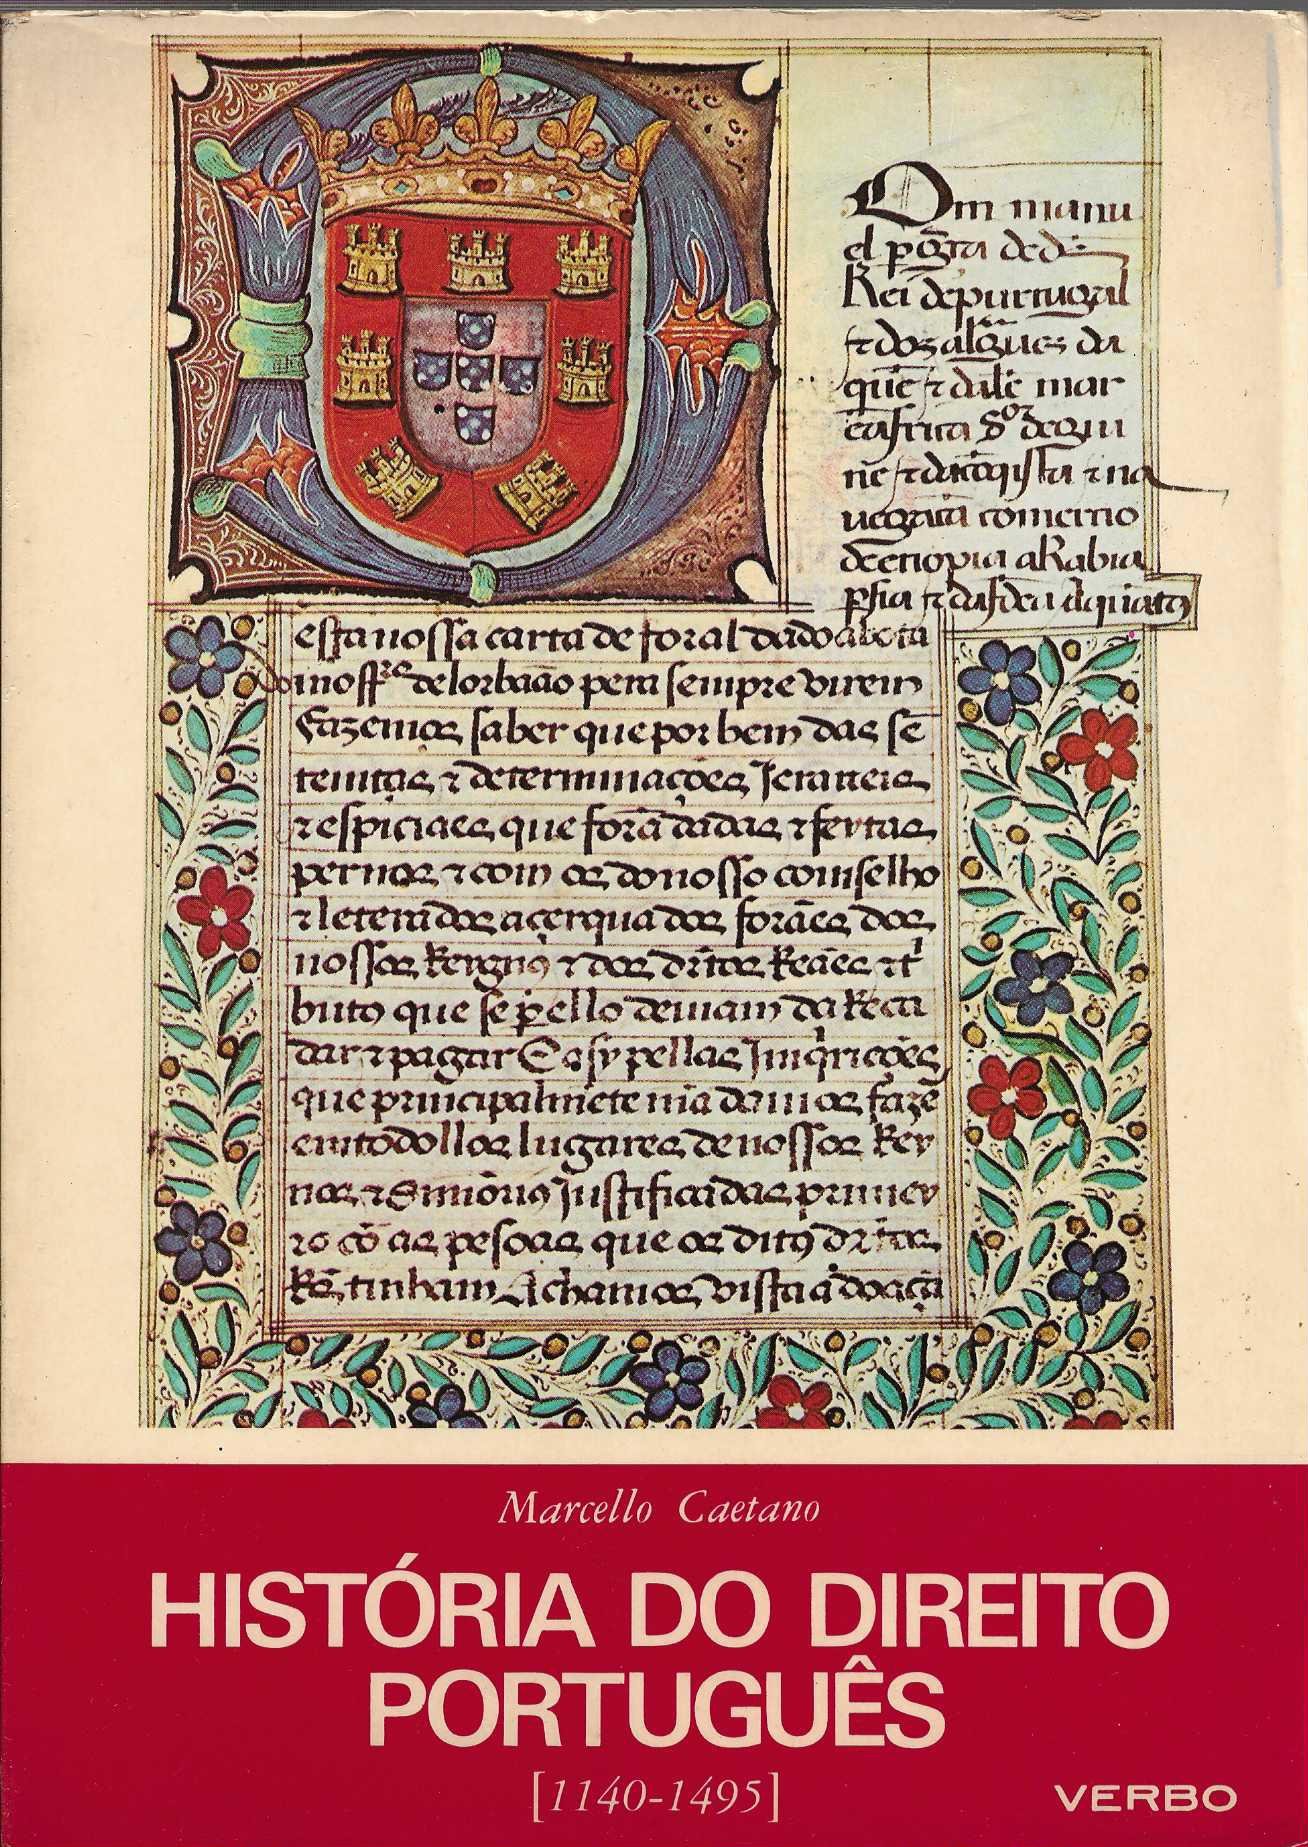 Dom manu
el per graça de ds
Rei de purtugal
⁊ dos algues da
que ⁊ dale mar
e africa sor de gui
ne ⁊ da coqista ⁊ na
uegaçã comercio
de etiopia aRabia
psia ⁊ da India A quãtos
esta nossa carta de foral dado a bota
do mosteiro de lorbaão pera sempre virem
fazemos saber que por bem das sẽ
tenças ⁊ determinações Jeraaeis
⁊ espiciaes que forã dadas ⁊ feytas
per nos ⁊ com os do nosso comselho
⁊ leterados açerqua dos forães dos
nossos Reygnos ⁊ dos dr̃itos Reaes ⁊ tri
butos que se per ello deuiam da Reca
dar ⁊ pagar E asy pellas Jnqriçoẽs
que principalmẽte mãdamos fazer
em todollos lugares de nossos Rey
nos ⁊ Senhorios Justificadas primey
ro cõ as pesoas que os ditos dr̃itos
Rẽs tinham Achamos vista a doaçã
Marcello Caetano
HISTÓRIA DO DIREITO
PORTUGUÊS
[1140-1495]
VERBO